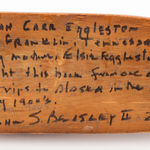 AN CARR EGGLESTON
FRANKLIN, TENNESSEE
MY MOTHER, ELSIE EGGLES
HT THIS BACK FROM ONE O
TRIPS TO ALASKA IN THE
Y 1900'S.
S. BEASLEY II